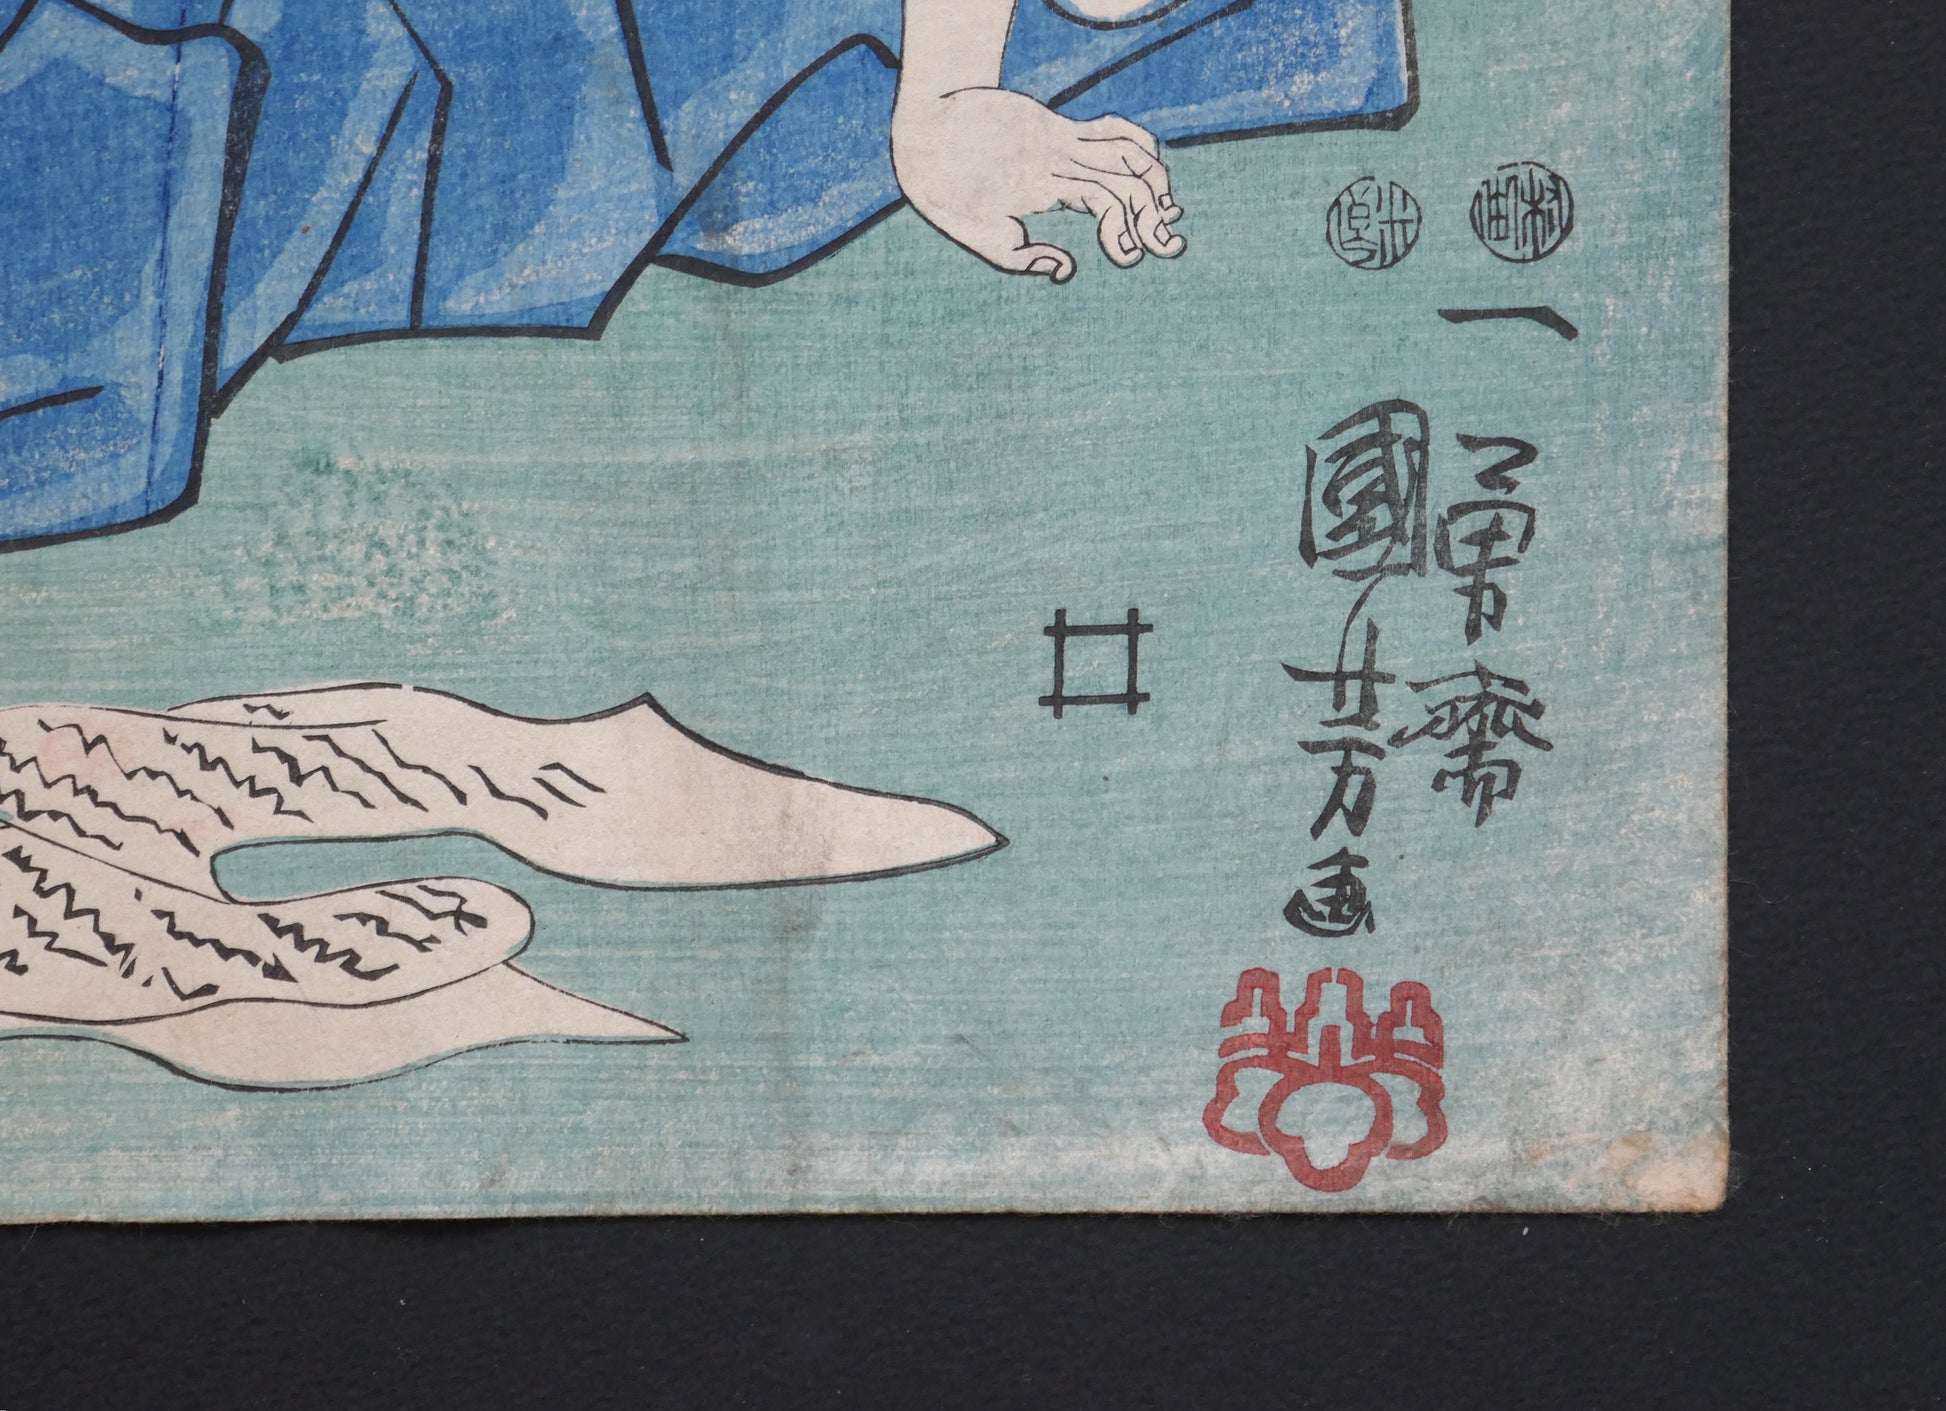 村
田
米
良
一勇齋
國芳画